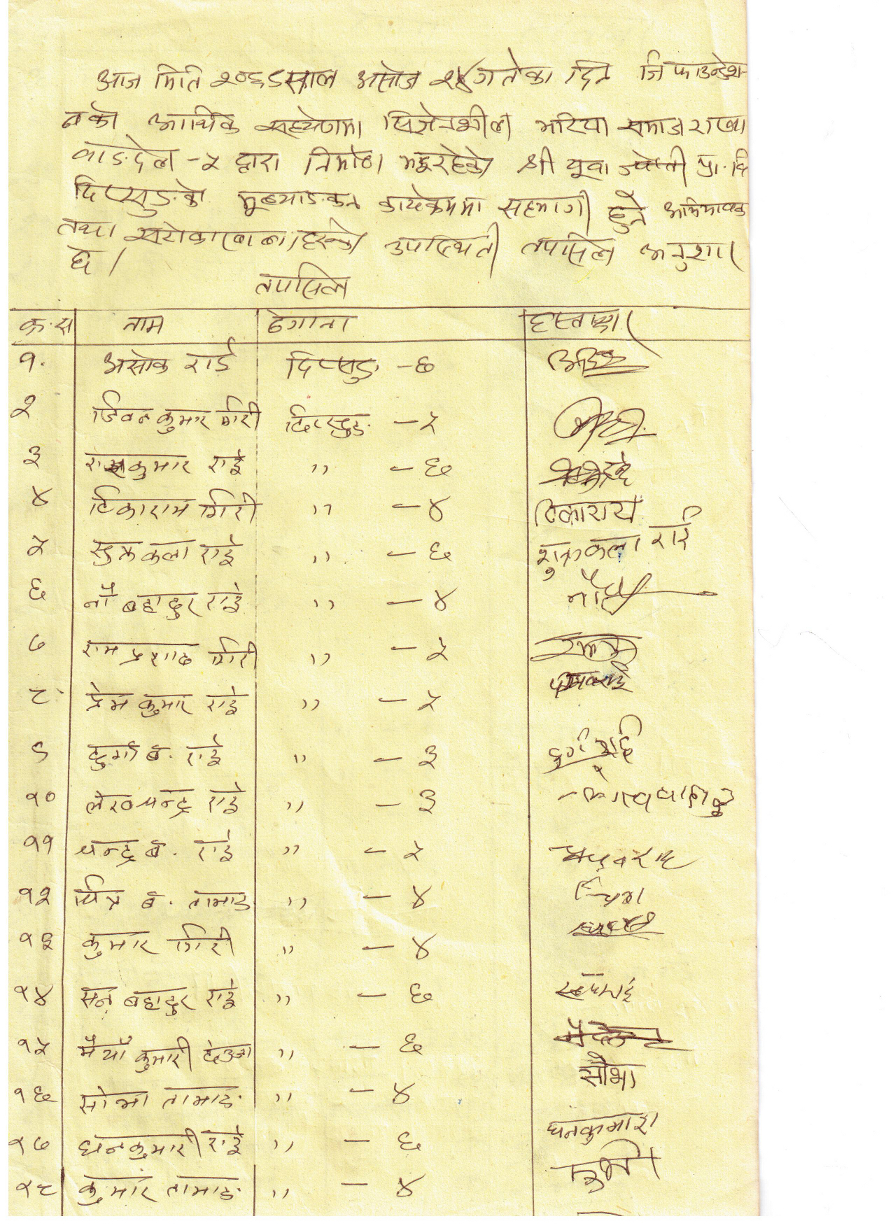 आज मिति २०६८ साल असोज २४ गतेका दिन जि फाउन्डेश-
नको आर्थिक सहयोगमा सिर्जनशील भरिया समाज शाखा
काङदेल -५ द्वारा निर्माण भइरहेको श्री युवा ज्योती प्रा. वि
दिप्सुङको मूल्याङकन कार्यक्रममा सहभागी हुने अभिभावक
तथा सरोकारवालाहरुको उपस्थिती तपसिल अनुशार
छ।
तपसिल
क्र.स नाम ठेगाना हस्ताक्षर
१. असोक राई दिप्सुङ -६
२ जिवन कुमार गिरी दिप्सुङ -५
३ राजकुमार राई ,, -६
४ टिकाराम गिरी ,, -४ टिकाराय
५ सुक्रकला राई ,, -६ शुक्रकला राई
६ नौ बहादुर राई ,, -४
७ राम प्रशाद गिरी ,, -५
८ प्रेम कुमार राई ,, -५
९ दुर्गा ब. राई ,, -३ दुर्गा राई
१० लेखचन्द्र राई ,, -३
११ चन्द्र ब. राई ,, -५
१२ चित्र ब. तामाङ ,, -४
१३ कुमार गिरी ,, -४
१४ सन् बहादुर राई ,, -६
१५ मैयाँ कुमारी ,, -६
१६ सोभा तामाङ ,, -४ सोभा
१७ धनकुमारी राई ,, -६ धनकुमारी
१८ कुमार तामाङ ,, -४